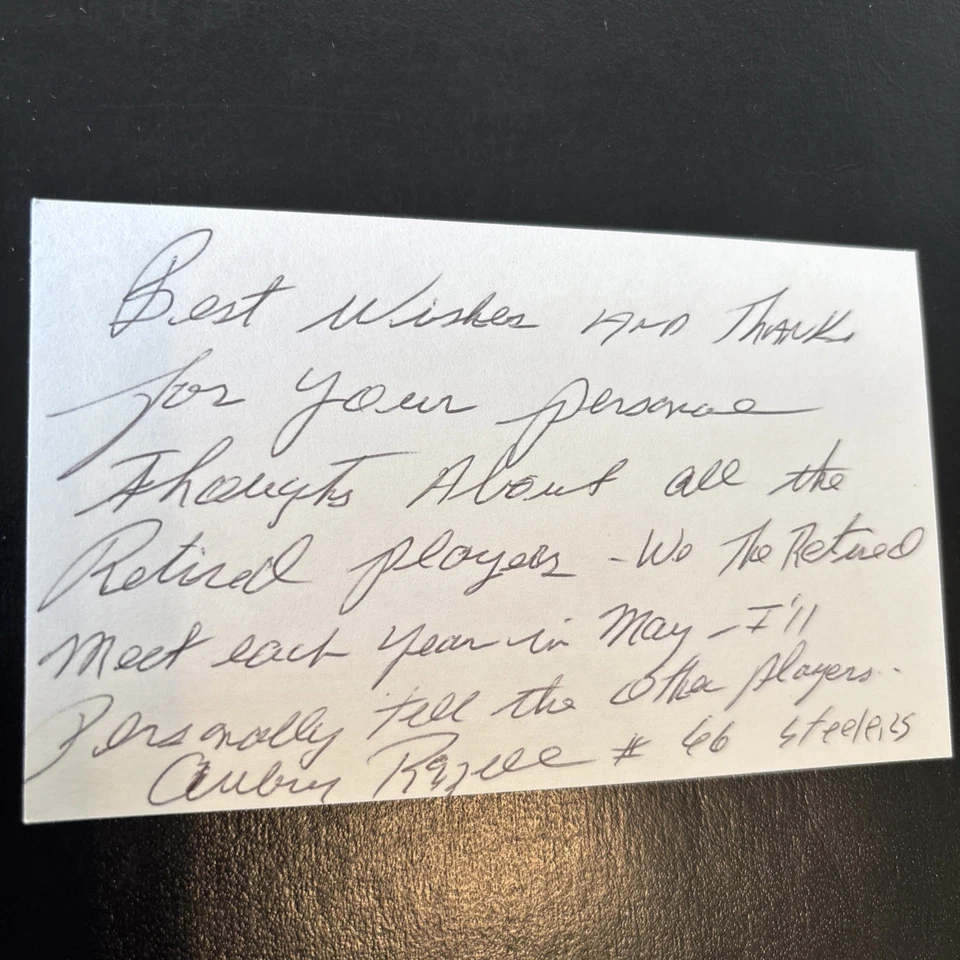 Best Wishes AND THANK
for your personal
Thoughts About all the
Retired players - We The Retired
Meet each year in May - I'll
Personally tell the other players.
Aubrey Rozzell # 66 Steelers